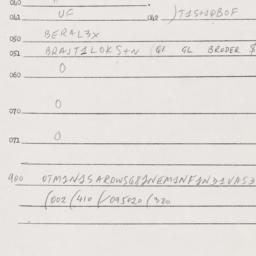 040
041 UC 042 )T1S+1PBOF
050 BERAL3X
051 BRAJT1LOKS+N (GI GL BRODER $
060 0
070 0
071 0
900 OTM1N1SARDWSG81NEM1NF1ND1VAS3
(002 (410 (/095020 (320